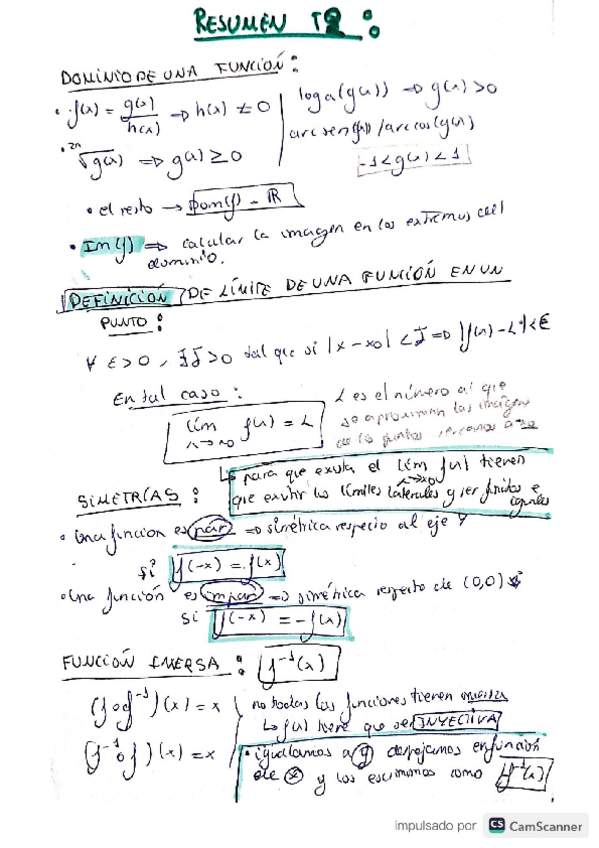 RESUMEN T2:
DOMINIO DE UNA FUNCIÓN:
• f(x) = g(x)/h(x) ⇒ h(x) ≠ 0
• ²ⁿ√g(x) ⇒ g(x) ≥ 0
loga(g(x)) ⇒ g(x) > 0
arcsen(g(x)) / arccos(g(x))
-1 < g(x) < 1
• el resto → Dom(f) = ℝ
• Im(f) ⇒ calcular la imagen en los extremos del
dominio.
DEFINICIÓN DE LÍMITE DE UNA FUNCIÓN EN UN
PUNTO:
∀ ε > 0, ∃ δ > 0 tal que si |x - x₀| < δ ⇒ |f(x) - L| < ε
En tal caso:
lim f(x) = L
x→x₀
L es el número al que
se aproximan las imágenes
de los puntos cercanos a x₀
↳ para que exista el lím f(x) tienen
x→x₀
que existir los límites laterales y ser finitos e
iguales
SIMETRÍAS:
• Una función es par ⇒ simétrica respecto al eje Y
si f(-x) = f(x)
• Una función es impar ⇒ simétrica respecto de (0,0)
si f(-x) = -f(x)
FUNCIÓN INVERSA: f⁻¹(x)
(f∘f⁻¹)(x) = x
(f⁻¹∘f)(x) = x
no todas las funciones tienen inversa
↳ f(x) tiene que ser INYECTIVA
• igualamos a y despejamos en función
de x y los escribimos como f⁻¹(x)
impulsado por CS CamScanner